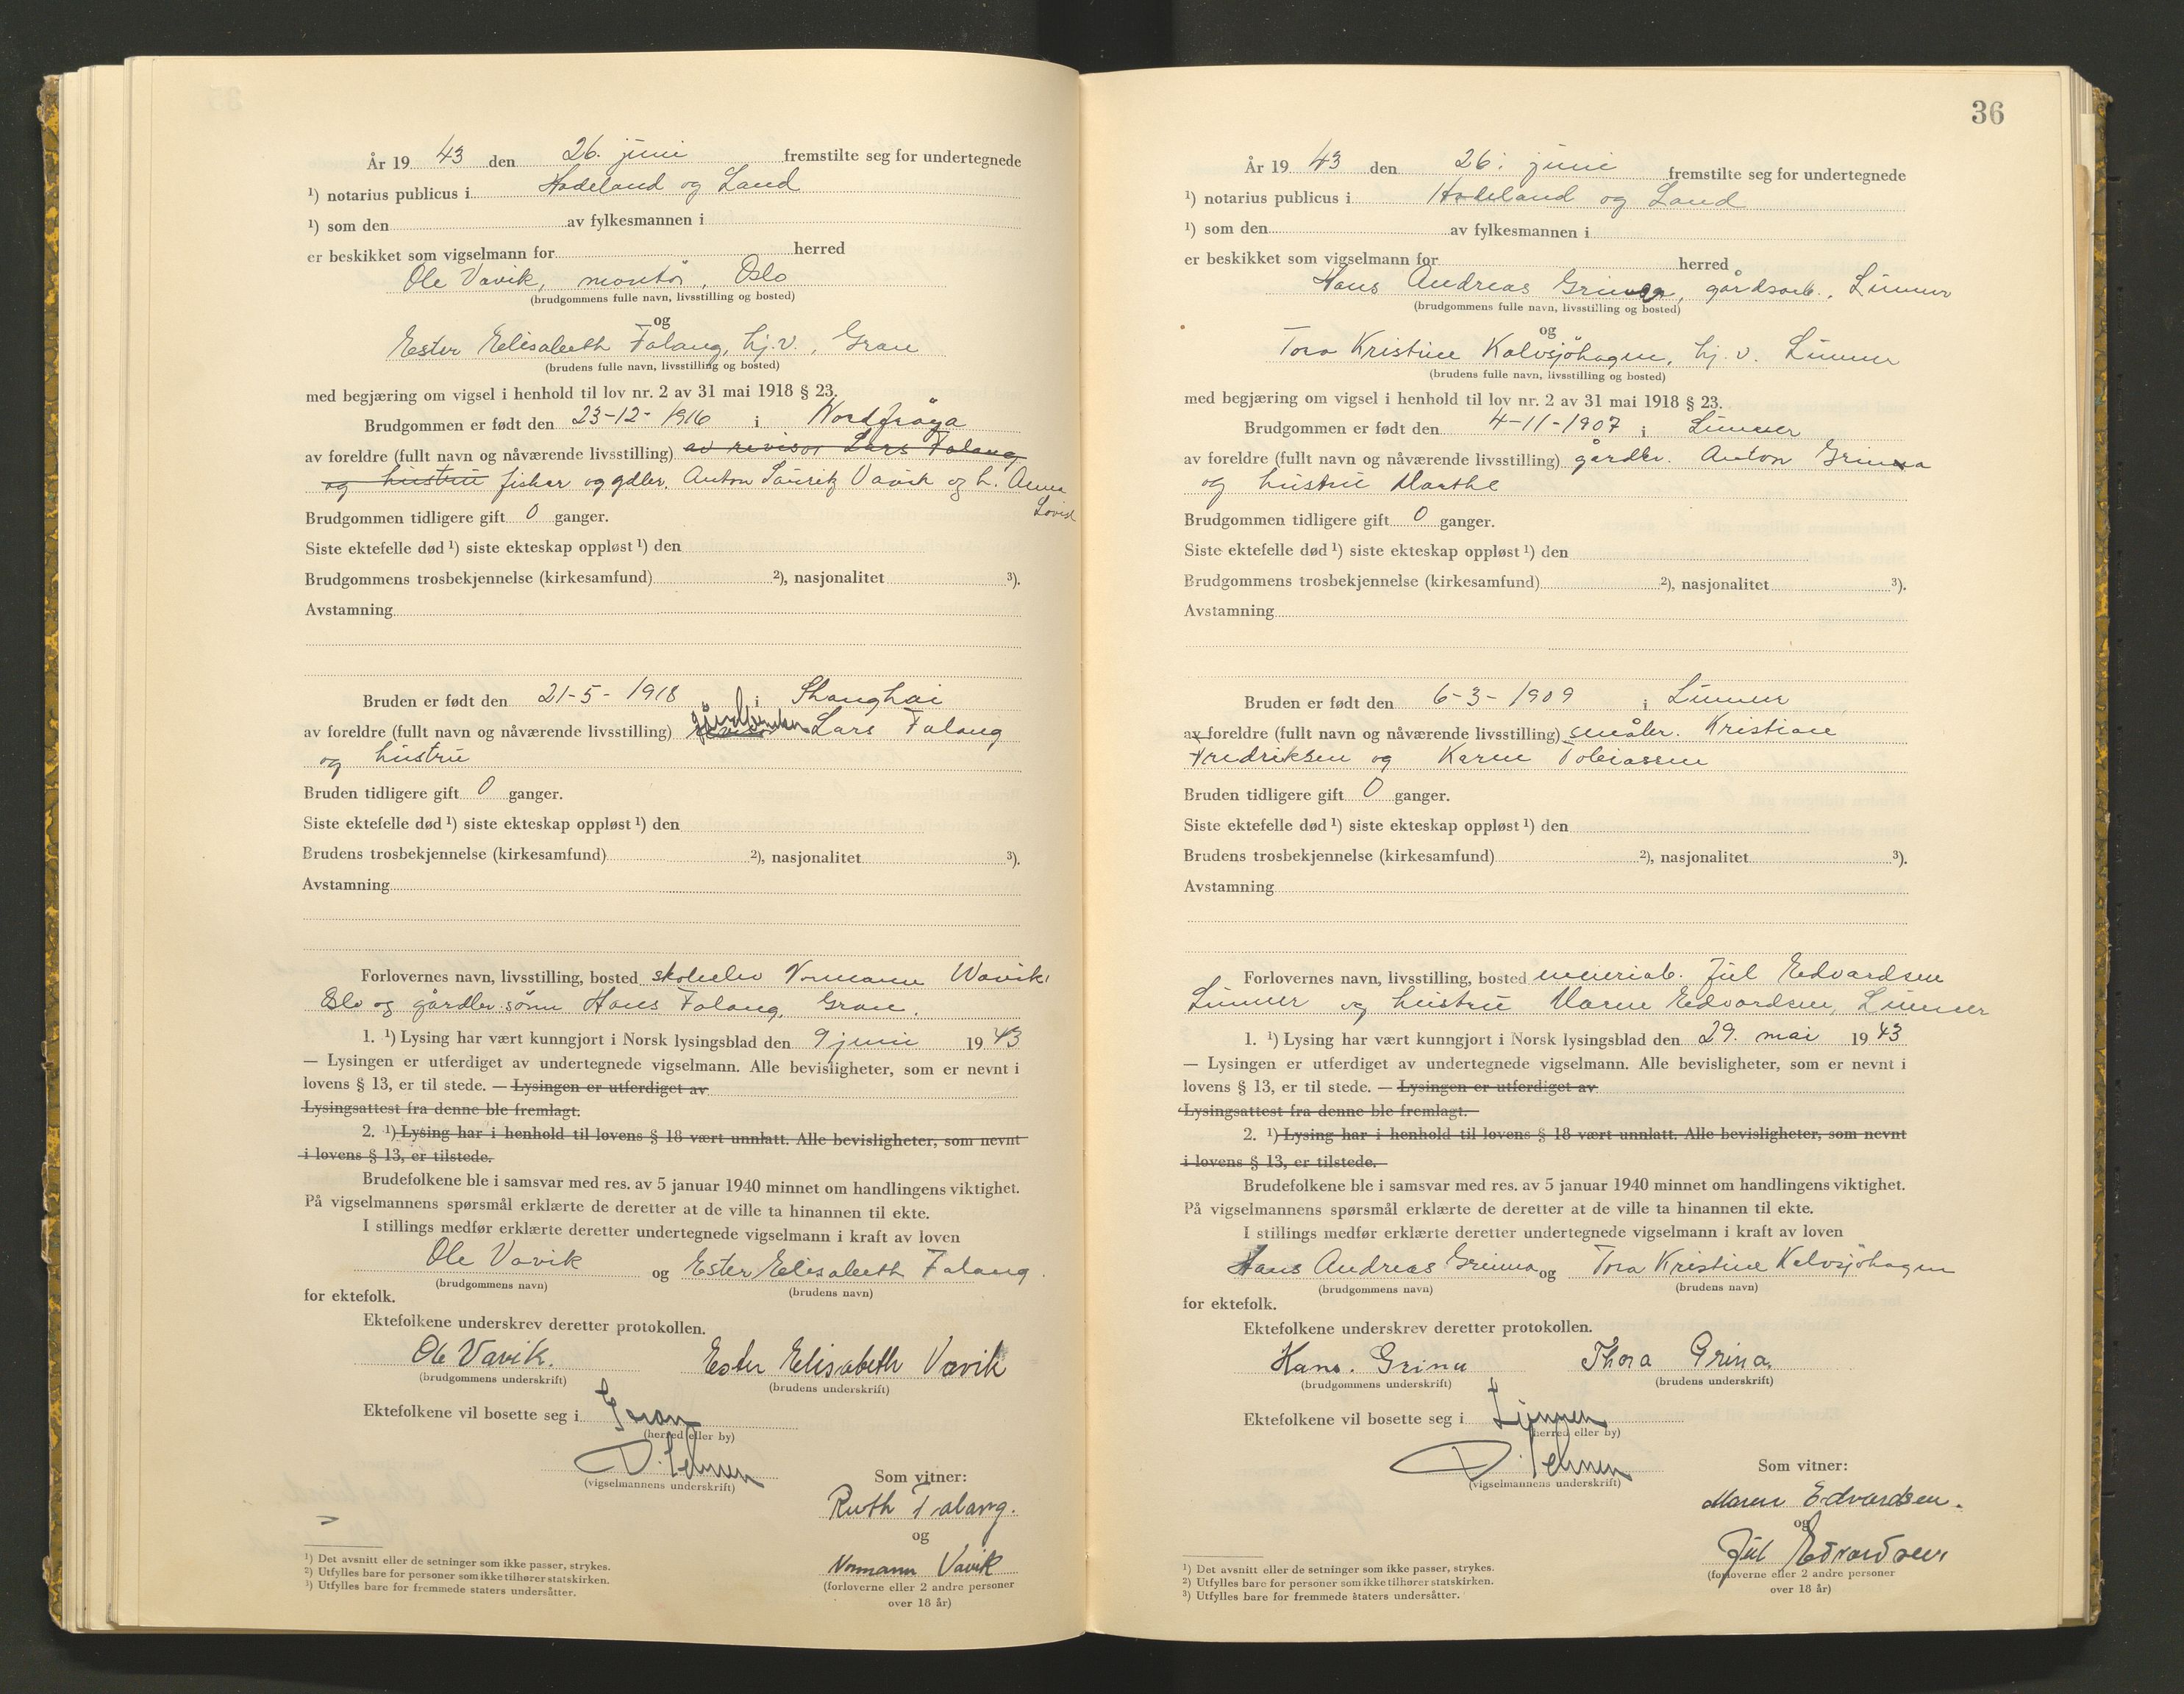 År 19 43 den 26. juni fremstilte seg for undertegnede
¹) notarius publicus i Hadeland og Land
¹) som den av fylkesmannen i
er beskikket som vigselmann for herred
Ole Vavik, montør, Oslo
(brudgommens fulle navn, livsstilling og bosted)
og
Ester Elisabeth Falang, hj.v., Gran
(brudens fulle navn, livsstilling og bosted)
med begjæring om vigsel i henhold til lov nr. 2 av 31 mai 1918 § 23.
Brudgommen er født den 23-12-1916 i Nordfrøya
av foreldre (fullt navn og nåværende livsstilling) av revisor Lars Falang
og hustru fisker og gdbr. Anton Lauritz Vavik og h. Anna
Lovise
Brudgommen tidligere gift 0 ganger.
Siste ektefelle død ¹) siste ekteskap oppløst ¹) den
Brudgommens trosbekjennelse (kirkesamfund) ²), nasjonalitet ³).
Avstamning
Bruden er født den 21-5-1918 i Shanghai
gårdbruker
av foreldre (fullt navn og nåværende livsstilling) revisor Lars Falang
og hustru
Bruden tidligere gift 0 ganger.
Siste ektefelle død ¹) siste ekteskap oppløst ¹) den
Brudens trosbekjennelse (kirkesamfund) ²), nasjonalitet ³).
Avstamning
Forlovernes navn, livsstilling, bosted skoleelev Normann Wavik,
Oslo og gårdbr.sønn Hans Falang, Gran.
1. ¹) Lysing har vært kunngjort i Norsk lysingsblad den 9 juni 19 43
— Lysingen er utferdiget av undertegnede vigselmann. Alle bevisligheter, som er nevnt i
lovens § 13, er til stede. — Lysingen er utferdiget av
Lysingsattest fra denne ble fremlagt.
2. ¹) Lysing har i henhold til lovens § 18 vært unnlatt. Alle bevisligheter, som nevnt
i lovens § 13, er tilstede.
Brudefolkene ble i samsvar med res. av 5 januar 1940 minnet om handlingens viktighet.
På vigselmannens spørsmål erklærte de deretter at de ville ta hinannen til ekte.
I stillings medfør erklærte deretter undertegnede vigselmann i kraft av loven
Ole Vavik og Ester Elisabeth Falang.
(brudgommens navn) (brudens navn)
for ektefolk.
Ektefolkene underskrev deretter protokollen.
Ole Vavik. Ester Elisabeth Vavik
(brudgommens underskrift) (brudens underskrift)
Ektefolkene vil bosette seg i Gran
(herred eller by)
(vigselmannens underskrift)
Som vitner:
Ruth Falang.
og
Normann Vavik
(forloverne eller 2 andre personer
over 18 år)
¹) Det avsnitt eller de setninger som ikke passer, strykes.
²) Utfylles bare for personer som ikke tilhører statskirken.
³) Utfylles bare for fremmede staters undersåtter.
36
År 19 43 den 26. juni fremstilte seg for undertegnede
¹) notarius publicus i Hadeland og Land
¹) som den av fylkesmannen i
er beskikket som vigselmann for herred
Hans Andreas Grinna, gårdsarb., Lunner
(brudgommens fulle navn, livsstilling og bosted)
og
Tora Kristine Kalvsjöhagen, hj. v. Lunner
(brudens fulle navn, livsstilling og bosted)
med begjæring om vigsel i henhold til lov nr. 2 av 31 mai 1918 § 23.
Brudgommen er født den 4-11-1907 i Lunner
av foreldre (fullt navn og nåværende livsstilling) gårdbr. Anton Grinna
og hustru Marthe
Brudgommen tidligere gift 0 ganger.
Siste ektefelle død ¹) siste ekteskap oppløst ¹) den
Brudgommens trosbekjennelse (kirkesamfund) ²), nasjonalitet ³).
Avstamning
Bruden er født den 6-3-1909 i Lunner
av foreldre (fullt navn og nåværende livsstilling) småbr. Kristian
Fredriksen og Karen Tobiassen
Bruden tidligere gift 0 ganger.
Siste ektefelle død ¹) siste ekteskap oppløst ¹) den
Brudens trosbekjennelse (kirkesamfund) ²), nasjonalitet ³).
Avstamning
Forlovernes navn, livsstilling, bosted meieriarb. Jul Edvardsen
Lunner og hustru Maren Edvardsen, Lunner
1. ¹) Lysing har vært kunngjort i Norsk lysingsblad den 29. mai 19 43
— Lysingen er utferdiget av undertegnede vigselmann. Alle bevisligheter, som er nevnt i
lovens § 13, er til stede. — Lysingen er utferdiget av
Lysingsattest fra denne ble fremlagt.
2. ¹) Lysing har i henhold til lovens § 18 vært unnlatt. Alle bevisligheter, som nevnt
i lovens § 13, er tilstede.
Brudefolkene ble i samsvar med res. av 5 januar 1940 minnet om handlingens viktighet.
På vigselmannens spørsmål erklærte de deretter at de ville ta hinannen til ekte.
I stillings medfør erklærte deretter undertegnede vigselmann i kraft av loven
Hans Andreas Grinna og Tora Kristine Kalvsjöhagen
(brudgommens navn) (brudens navn)
for ektefolk.
Ektefolkene underskrev deretter protokollen.
Hans. Grina Thora Grina.
(brudgommens underskrift) (brudens underskrift)
Ektefolkene vil bosette seg i Lunner
(herred eller by)
(vigselmannens underskrift)
Som vitner:
Maren Edvardsen.
og
Jul Edvardsen
(forloverne eller 2 andre personer
over 18 år)
¹) Det avsnitt eller de setninger som ikke passer, strykes.
²) Utfylles bare for personer som ikke tilhører statskirken.
³) Utfylles bare for fremmede staters undersåtter.